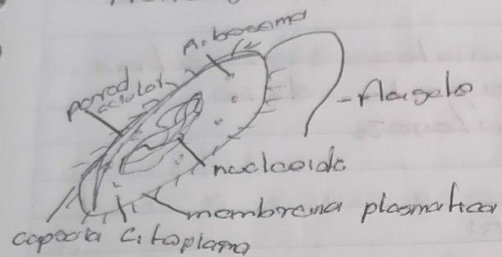 Ribosoma
pared
celular
flagelo
nucleoide
membrana plasmatica
capsula citoplasma